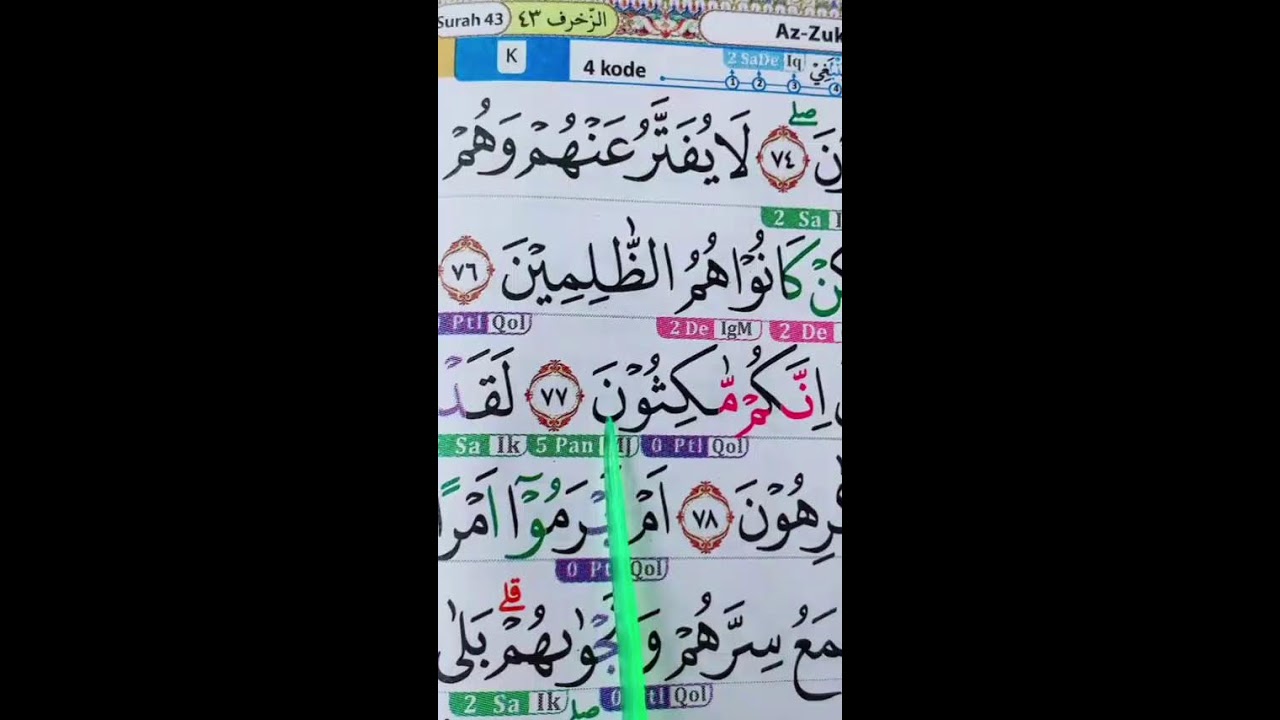 Surah 43 الزّخرف ٤٣ Az-Zuk
K 4 kode 2 SaDe Iq
1 2 3 4
صلے
نَ ٧٤ لَا يُفَتَّرُ عَنْهُمْ وَهُمْ
2 Sa I
كِنْ كَانُوْا هُمُ الظّٰلِمِيْنَ ٧٦
2 De 2 De IgM Ptl Qol
اِنَّكُمْ مّٰكِثُوْنَ ٧٧ لَقَدْ
0 Ptl Qol 5 Pan MJ Sa Ik
كٰرِهُوْنَ ٧٨ اَمْ اَبْرَمُوْٓا اَمْرًا
0 Ptl Qol
قلے
مَعُ سِرَّهُمْ وَنَجْوٰىهُمْ بَلٰى
0 Ptl Qol 2 Sa Ik
صلے